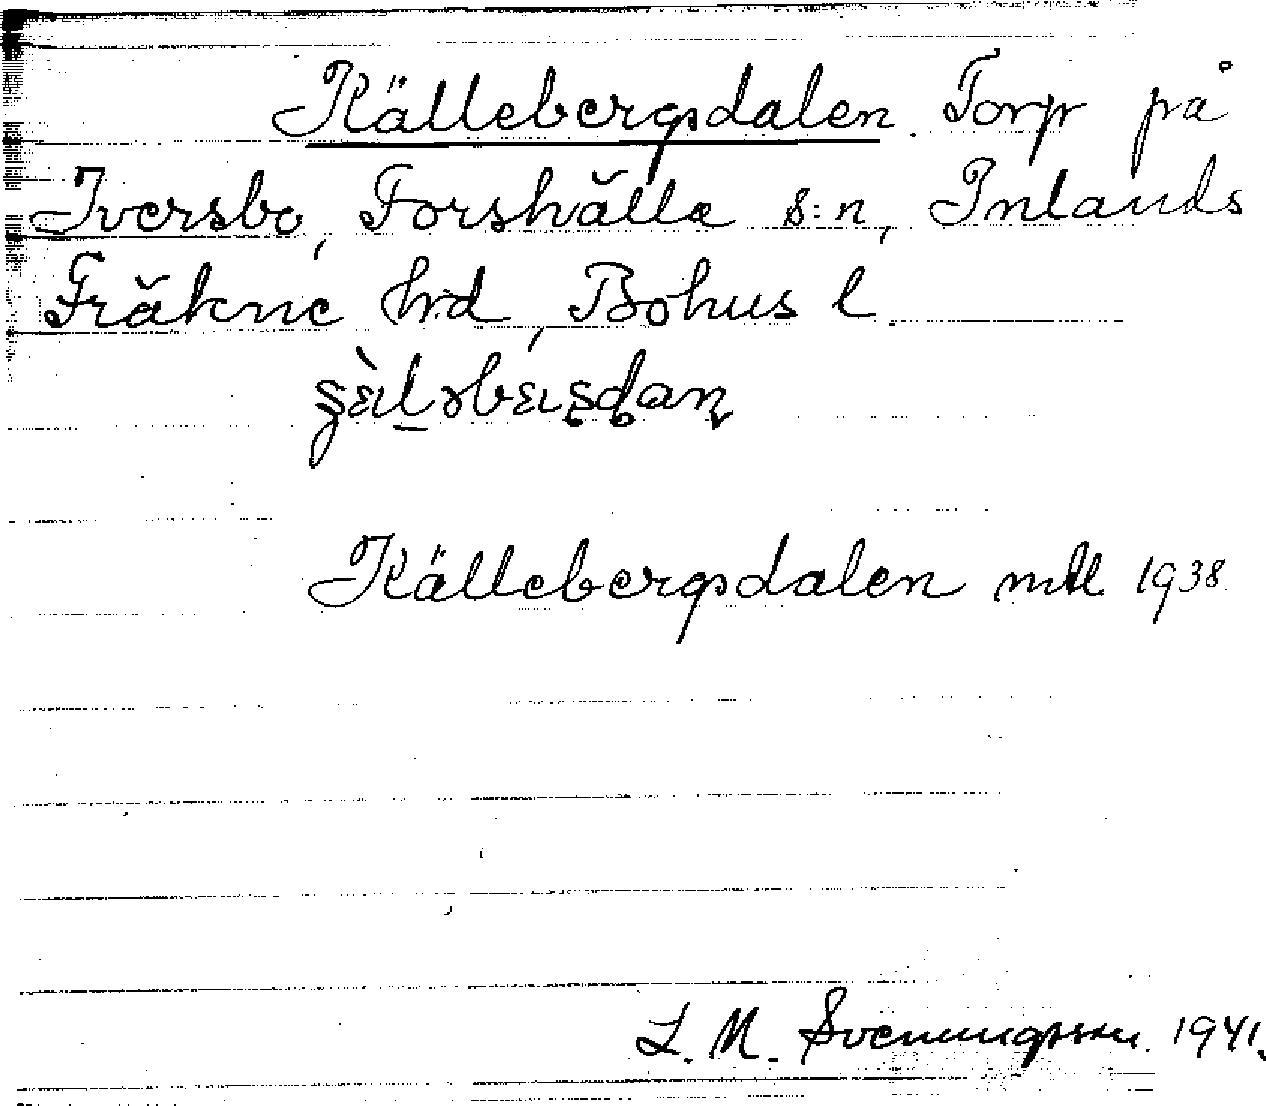 Källebergsdalen. Torp på
Iversbo, Forshälla s:n, Inlands
Fräkne hrd, Bohus l
Källebergsdalen mtl 1938.
L. M. Svenungsson. 1941.